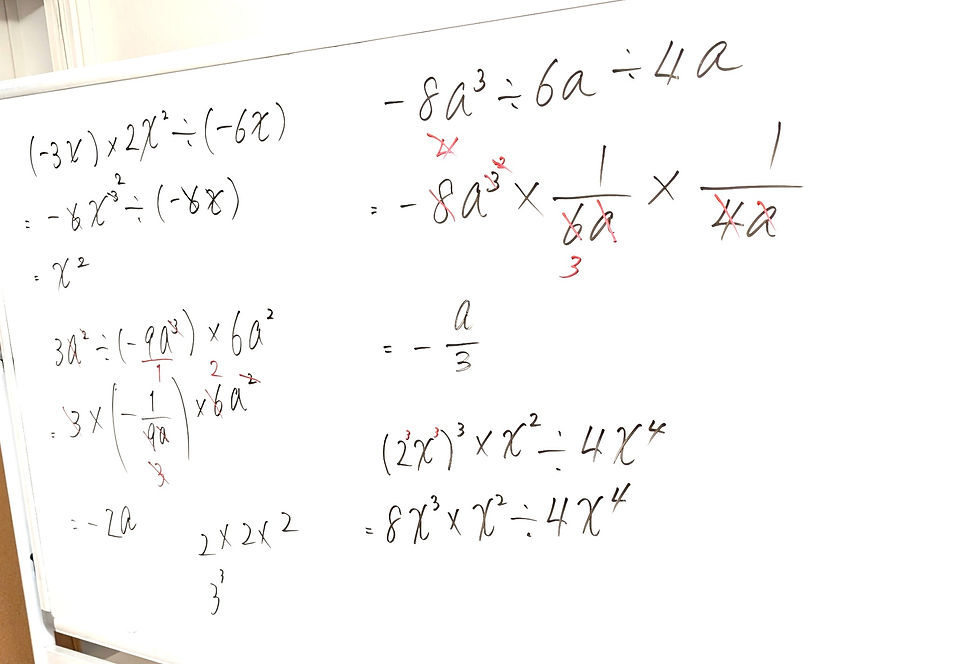 (-3x)×2x²÷(-6x)
= -6x³ ² ÷(-6x)
= x²
3a²÷(-9a³)×6a²
1 2
= 3×(-1/9a)×6a²
3
= -2a
2×2×2
3³
-8a³÷6a÷4a
4 2
= -8a³ × 1/6a × 1/4a
3
= - a/3
(2³x³)³×x²÷4x⁴
= 8x³×x²÷4x⁴